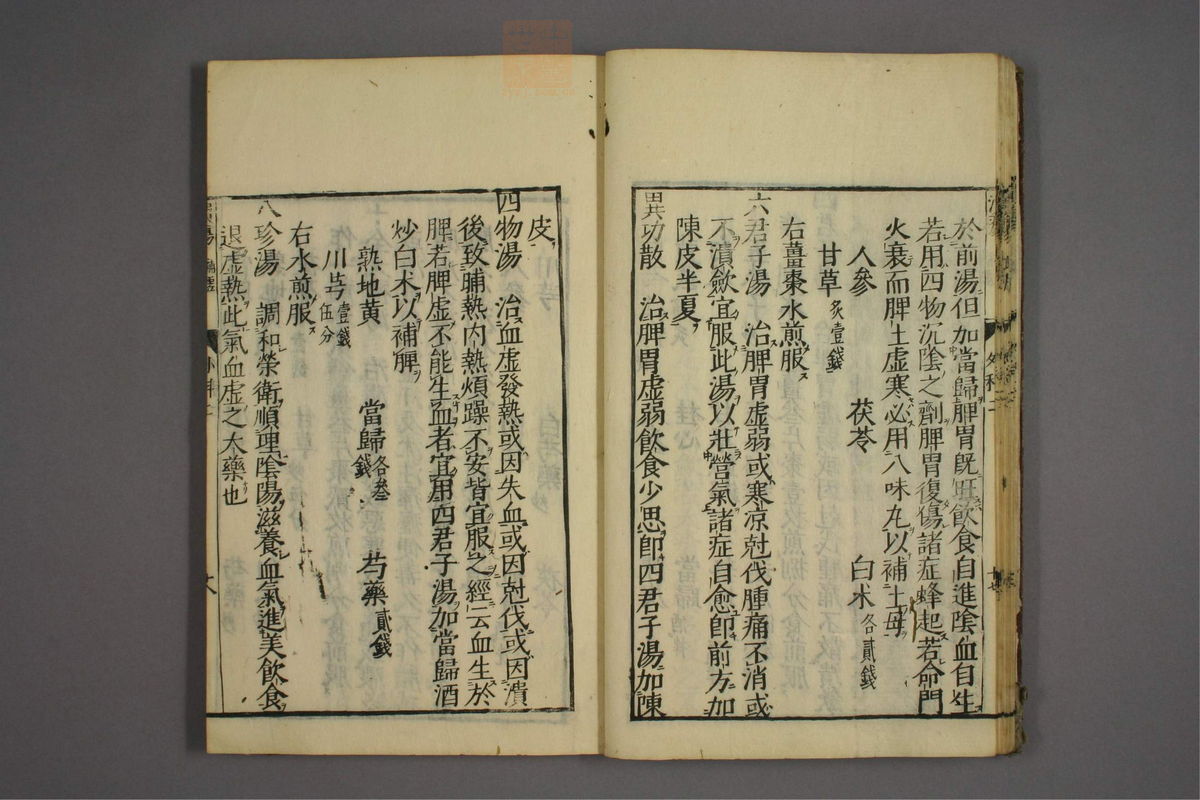 於前湯但加當歸脾胃旣旺飲食自進陰血自生
若用四物沉陰之劑脾胃復傷諸症蜂起若命門
火衰而脾土虛寒必用八味丸以補土母
人參 茯苓 白朮各貳錢
甘草炙壹錢
右薑棗水煎服
六君子湯 治脾胃虛弱或寒凉尅伐腫痛不消或
不潰斂宜服此湯以壯營氣諸症自愈卽前方加
陳皮半夏
異功散 治脾胃虛弱飲食少思卽四君子湯加陳
皮
四物湯 治血虛發熱或因失血或因尅伐或因潰
後致晡熱內熱煩躁不安皆宜服之經云血生於
脾若脾虛不能生血者宜用四君子湯加當歸酒
炒白朮以補脾
熟地黃 當歸各叁錢 芍藥貳錢
川芎壹錢伍分
右水煎服
八珍湯 調和榮衛順理陰陽滋養血氣進美飲食
退虛熱此氣血虛之大藥也